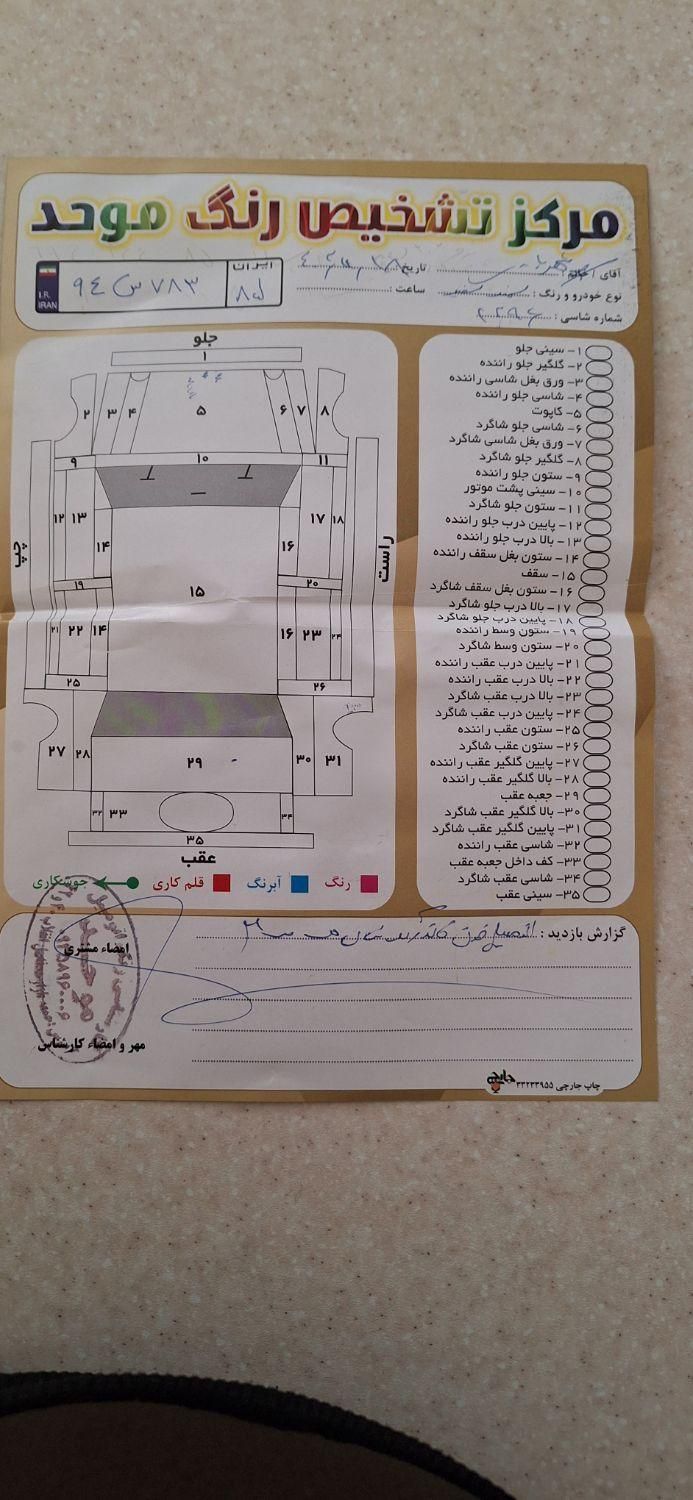 مرکز تشخیص رنگ موحد
آقای / خانم :
تاریخ
نوع خودرو و رنگ :
ساعت :
شماره شاسی :
I.R.
IRAN
۹۴ س ۷۸۳
ایران
۸۵
جلو
۱
۲ ۳ ۴ ۵ ۶ ۷ ۸
۹ ۱۰ ۱۱
۱۲ ۱۳ ۱۴ ۱۵ ۱۶ ۱۷ ۱۸
چپ
راست
۱۹ ۲۰
۲۱ ۲۲ ۱۴ ۱۶ ۲۳ ۲۴
۲۵ ۲۶
۲۷ ۲۸ ۲۹ ۳۰ ۳۱
۳۲ ۳۳ ۳۴
۳۵
عقب
رنگ
آبرنگ
قلم کاری
جوشکاری
۱- سینی جلو
۲- گلگیر جلو راننده
۳- ورق بغل شاسی راننده
۴- شاسی جلو راننده
۵- کاپوت
۶- شاسی جلو شاگرد
۷- ورق بغل شاسی شاگرد
۸- گلگیر جلو شاگرد
۹- ستون جلو راننده
۱۰- سینی پشت موتور
۱۱- ستون جلو شاگرد
۱۲- پایین درب جلو راننده
۱۳- بالا درب جلو راننده
۱۴- ستون بغل سقف راننده
۱۵- سقف
۱۶- ستون بغل سقف شاگرد
۱۷- بالا درب جلو شاگرد
۱۸- پایین درب جلو شاگرد
۱۹- ستون وسط راننده
۲۰- ستون وسط شاگرد
۲۱- پایین درب عقب راننده
۲۲- بالا درب عقب راننده
۲۳- بالا درب عقب شاگرد
۲۴- پایین درب عقب شاگرد
۲۵- ستون عقب راننده
۲۶- ستون عقب شاگرد
۲۷- پایین گلگیر عقب راننده
۲۸- بالا گلگیر عقب راننده
۲۹- جعبه عقب
۳۰- بالا گلگیر عقب شاگرد
۳۱- پایین گلگیر عقب شاگرد
۳۲- شاسی عقب راننده
۳۳- کف داخل جعبه عقب
۳۴- شاسی عقب شاگرد
۳۵- سینی عقب
گزارش بازدید :
امضاء مشتری
مهر و امضاء کارشناس
چاپ جارچی ۳۳۲۳۳۹۵۵